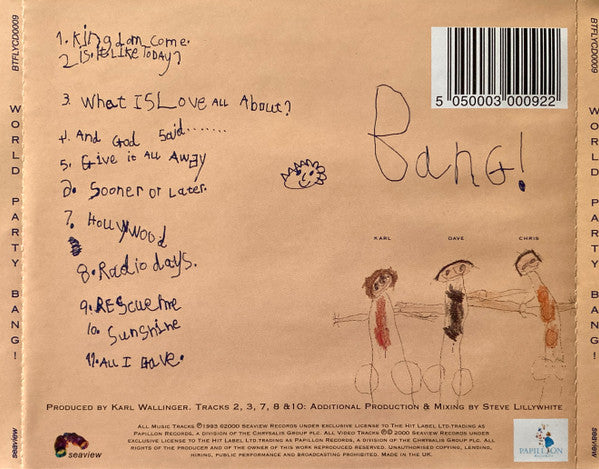 BTFLYCD0009
WORLD PARTY BANG!
seaview
1. Kingdom Come.
2 IS It LiKE TODAY?
3. What IS Love All About?
4. And God Said.......
5. Give it All Away
6. Sooner or Later.
7. Hollywood
8. Radio days.
9. REScue me
10. Sunshine
11. All I Gave.
5 050003 000922
Bang!
KARL DAVE CHRIS
PRODUCED BY KARL WALLINGER. TRACKS 2, 3, 7, 8 & 10: ADDITIONAL PRODUCTION & MIXING BY STEVE LILLYWHITE
seaview
ALL MUSIC TRACKS ℗1993 ©2000 SEAVIEW RECORDS UNDER EXCLUSIVE LICENSE TO THE HIT LABEL LTD.TRADING AS
PAPILLON RECORDS, A DIVISION OF THE CHRYSALIS GROUP PLC. ALL VIDEO TRACKS ℗© 2000 SEAVIEW RECORDS UNDER
EXCLUSIVE LICENSE TO THE HIT LABEL LTD.TRADING AS PAPILLON RECORDS, A DIVISION OF THE CHRYSALIS GROUP PLC. ALL RIGHTS OF
PRODUCER AND OF THE OWNER OF THIS WORK REPRODUCED RESERVED. UNAUTHORISED COPYING, LENDING,
HIRING, PUBLIC PERFORMANCE AND BROADCASTING PROHIBITED. MADE IN THE UK.
PAPILLON
RECORDS
BTFLYCD0009
WORLD PARTY BANG!
seaview